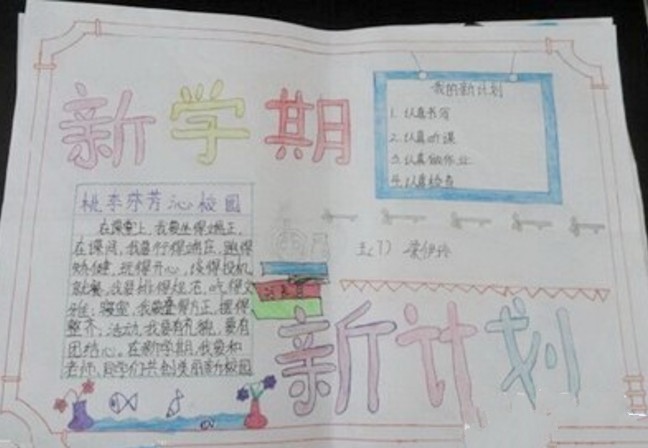 新学期
我的新计划
1. 认真书写
2. 认真听课
3. 认真做作业
4. 认真检查
桃李芬芳沁校园
在课堂上,我要坐得端正。
在课间,我要行得端庄,跑得
矫健,玩得开心,谈得投机,
就餐,我要排得规范,吃得文
雅;寝室,我要叠得方正,摆得
整齐,活动,我要有礼貌,要有
团结心。在新学期,我要和
老师、同学们共创美丽新校园
五(1)
新计划